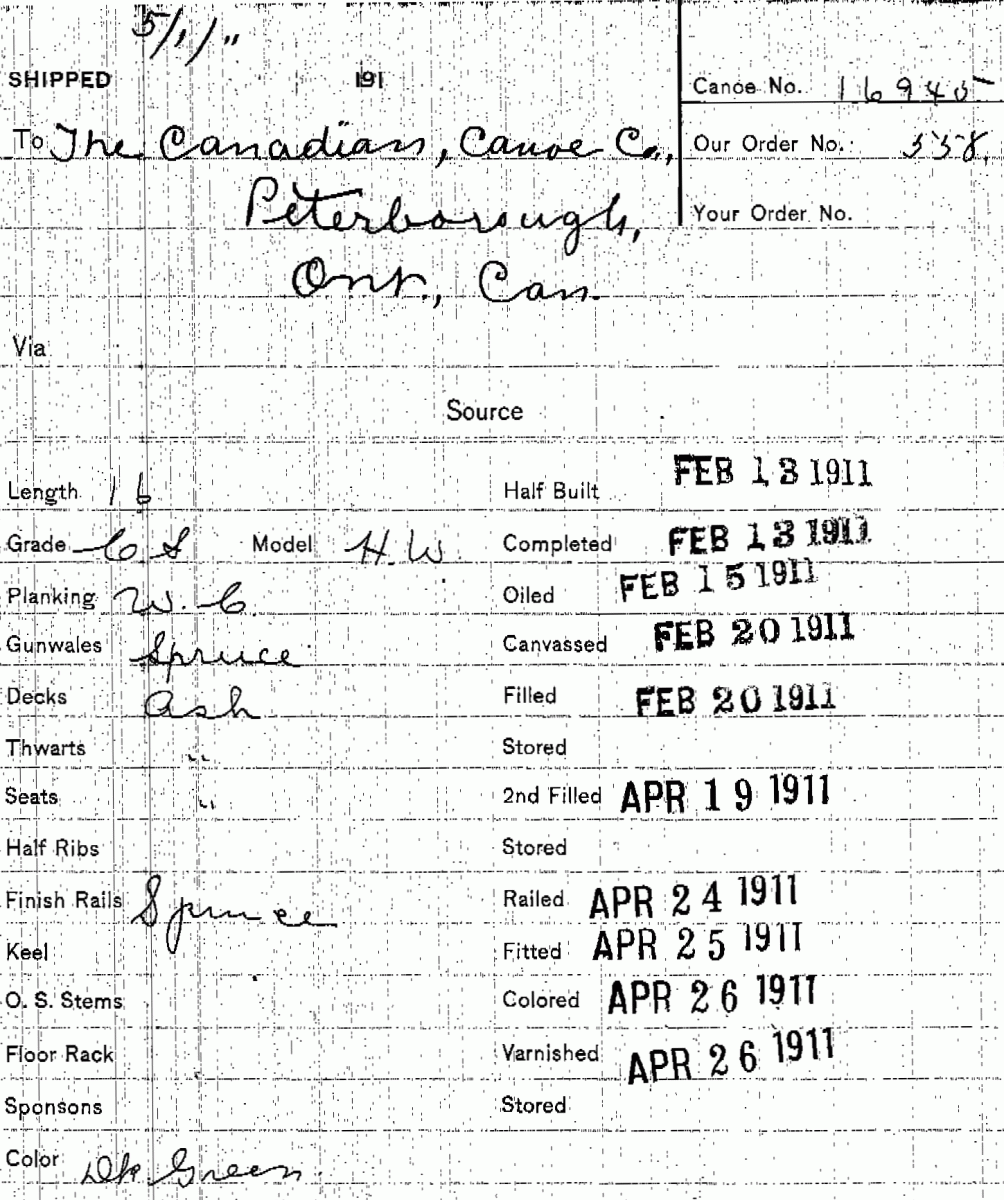 5/1/11
SHIPPED 191
Canoe No. 16945
To The Canadian, Canoe Co.,
Our Order No. 558.
Peterborough,
Your Order No.
Ont., Can.
Via
Source
Length 16 Half Built FEB 13 1911
Grade C S Model H.W. Completed FEB 13 1911
Planking W. C. Oiled FEB 15 1911
Gunwales Spruce Canvassed FEB 20 1911
Decks Ash Filled FEB 20 1911
Thwarts " Stored
Seats " 2nd Filled APR 19 1911
Half Ribs Stored
Finish Rails Spruce Railed APR 24 1911
Keel Fitted APR 25 1911
O. S. Stems Colored APR 26 1911
Floor Rack Varnished APR 26 1911
Sponsons Stored
Color Dk Green